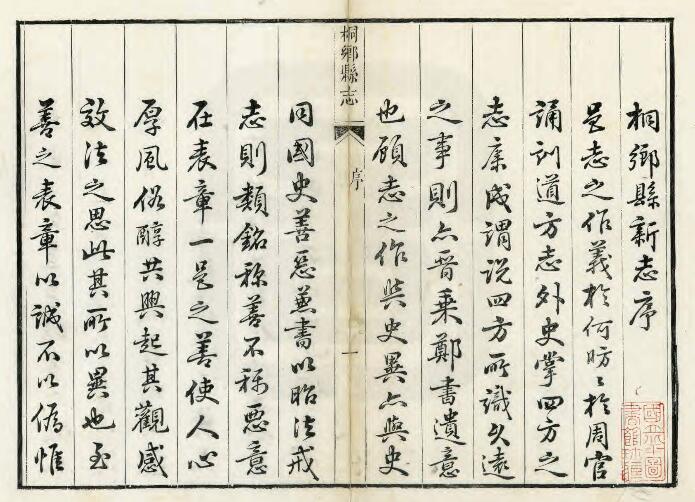 桐鄉縣新志序
邑志之作義於何昉〻於周官
誦訓道方志外史掌四方之
志康成謂說四方所識久遠
之事則亦晉乘鄭書遺意
也顧志之作與史異亦與史
桐鄉縣志
序
一
同國史善惡兼書以昭法戒
志則類銘称善不称惡意
在表章一邑之善使人心
厚風俗醇共興起其觀感
效法之思此其所以異也至
善之表章以誠不以僞惟